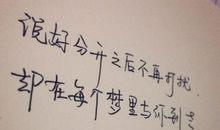 说好分开之后不再打扰.
却在每个梦里与你到老